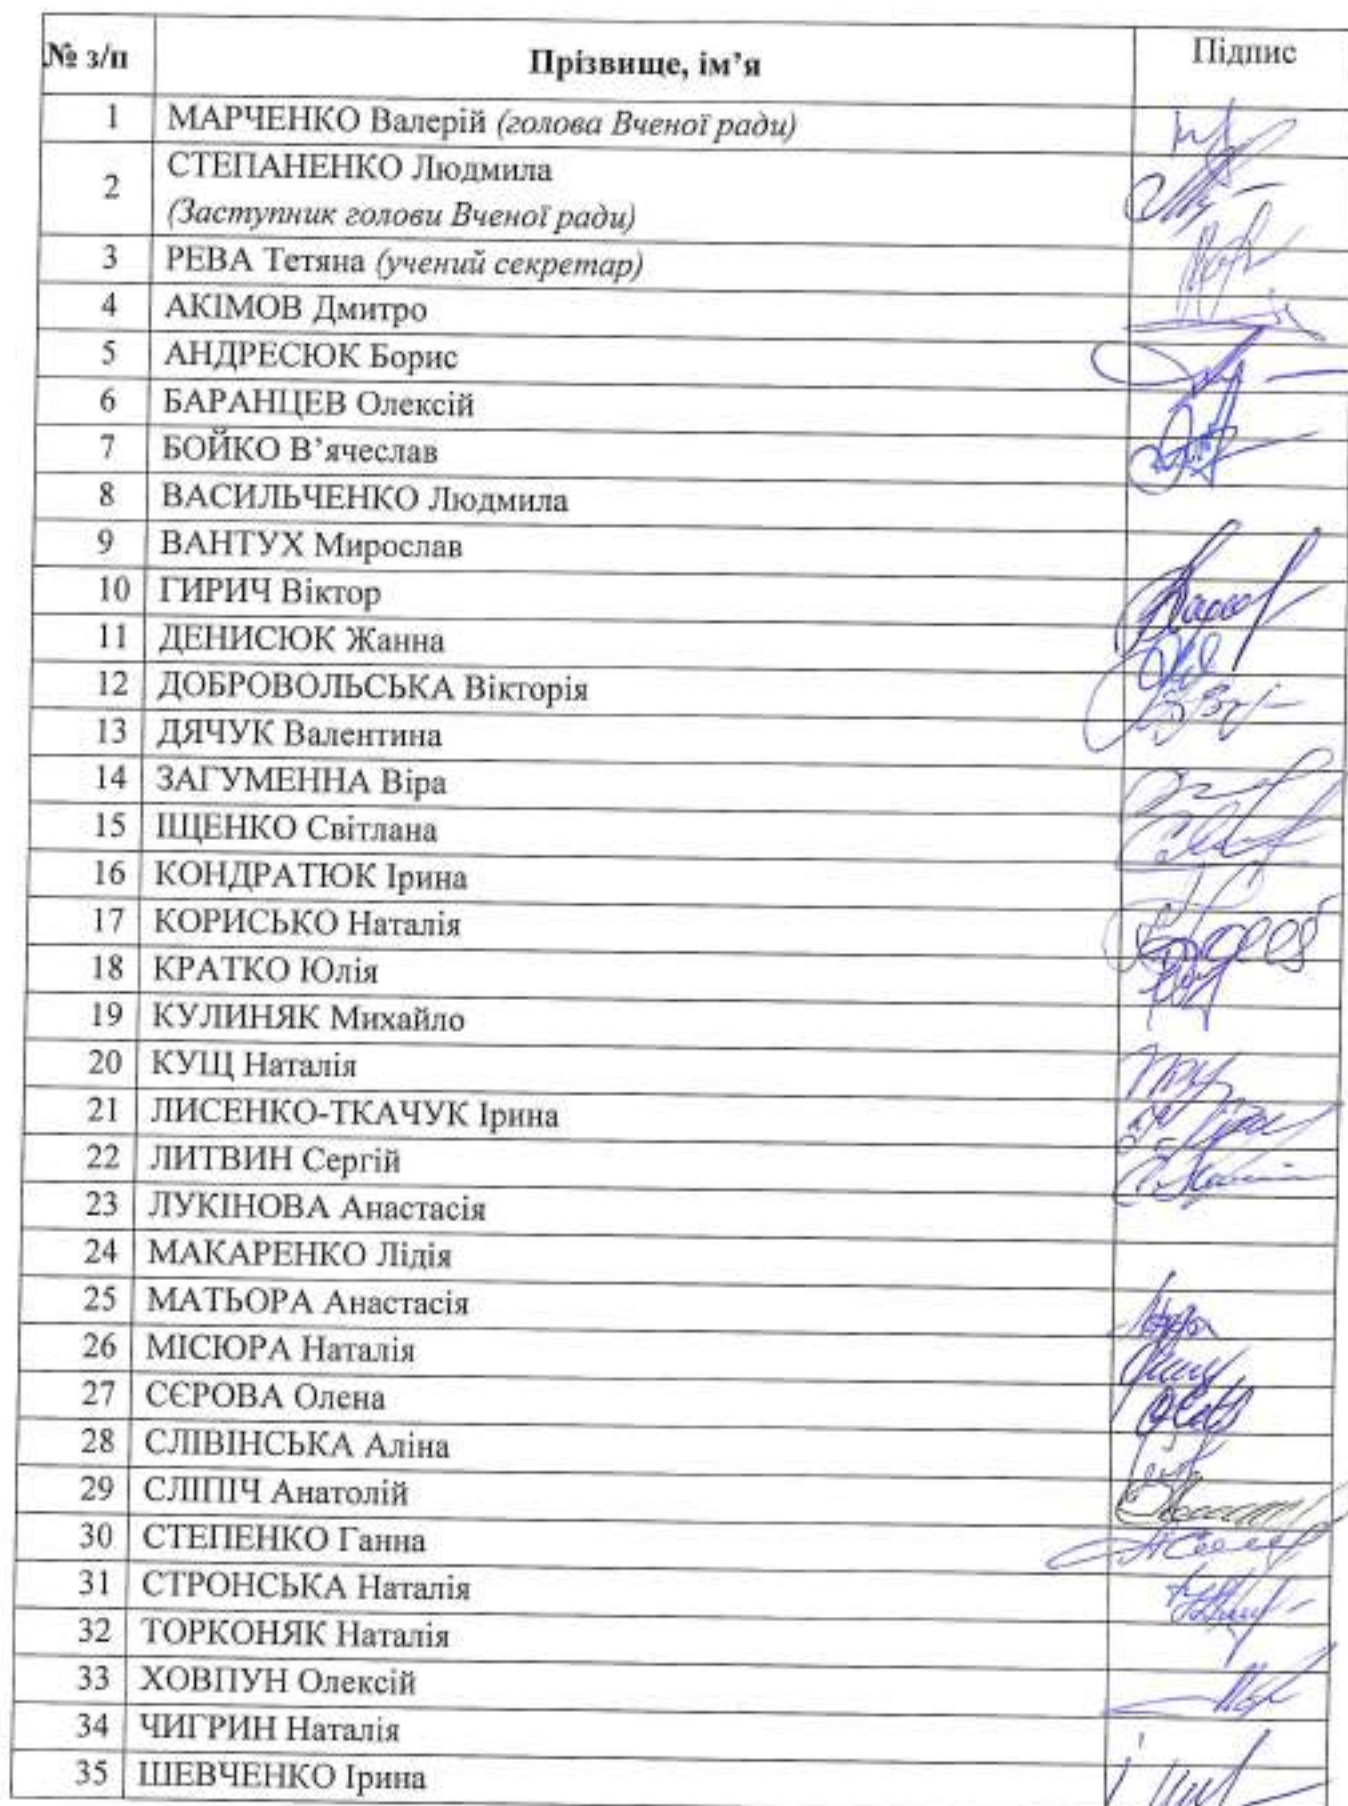 № з/п Прізвище, ім’я Підпис
1 МАРЧЕНКО Валерій (голова Вченої ради)
2 СТЕПАНЕНКО Людмила
(Заступник голови Вченої ради)
3 РЕВА Тетяна (учений секретар)
4 АКІМОВ Дмитро
5 АНДРЕСЮК Борис
6 БАРАНЦЕВ Олексій
7 БОЙКО В’ячеслав
8 ВАСИЛЬЧЕНКО Людмила
9 ВАНТУХ Мирослав
10 ГИРИЧ Віктор
11 ДЕНИСЮК Жанна
12 ДОБРОВОЛЬСЬКА Вікторія
13 ДЯЧУК Валентина
14 ЗАГУМЕННА Віра
15 ІЩЕНКО Світлана
16 КОНДРАТЮК Ірина
17 КОРИСЬКО Наталія
18 КРАТКО Юлія
19 КУЛИНЯК Михайло
20 КУЩ Наталія
21 ЛИСЕНКО-ТКАЧУК Ірина
22 ЛИТВИН Сергій
23 ЛУКІНОВА Анастасія
24 МАКАРЕНКО Лідія
25 МАТЬОРА Анастасія
26 МІСЮРА Наталія
27 СЄРОВА Олена
28 СЛІВІНСЬКА Аліна
29 СЛІПІЧ Анатолій
30 СТЕПЕНКО Ганна
31 СТРОНСЬКА Наталія
32 ТОРКОНЯК Наталія
33 ХОВПУН Олексій
34 ЧИГРИН Наталія
35 ШЕВЧЕНКО Ірина